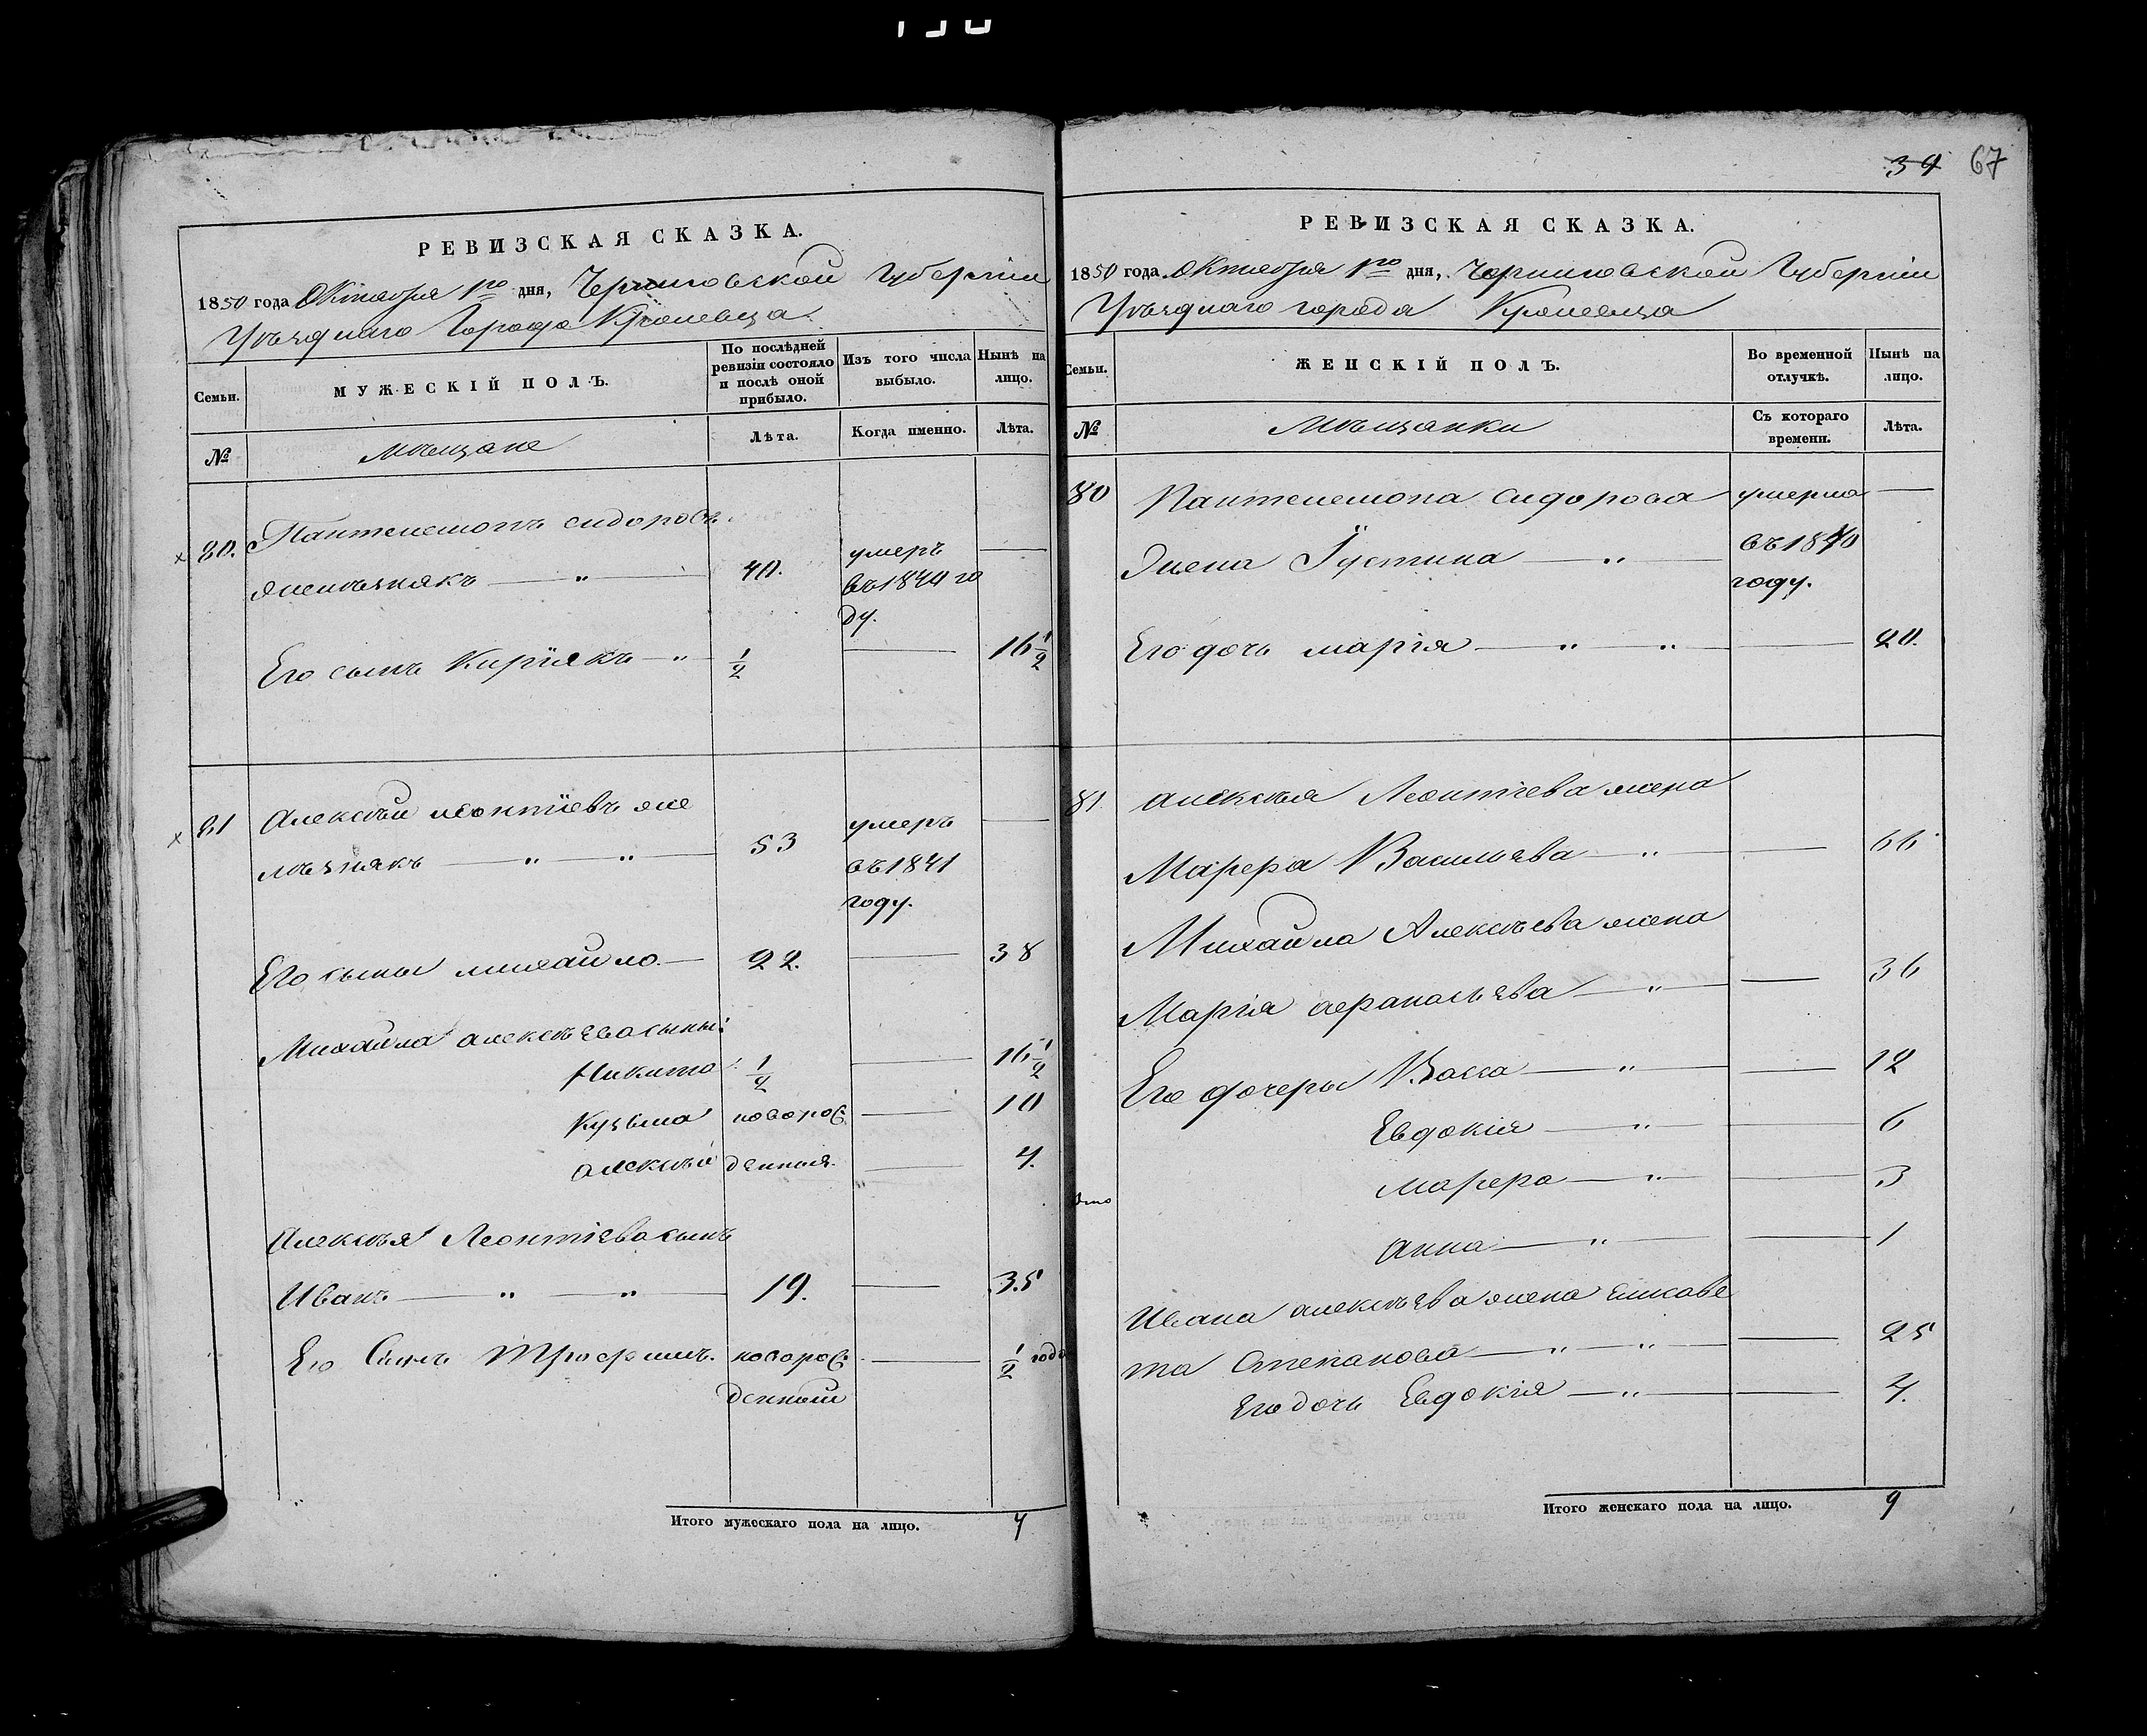 39 67
РЕВИЗСКАЯ СКАЗКА.
1850 года Октября 1го дня, Черниговской Губерніи
Уѣзднаго Города Кролевца.
Семьи.
МУЖЕСКІЙ ПОЛЪ.
По послѣдней ревизіи состояло и послѣ оной прибыло.
Изъ того числа выбыло.
Нынѣ на лицо.
№
Мѣщане
Лѣта.
Когда именно.
Лѣта.
80. Пантелемонъ Сидоровъ
40. умеръ —
въ 1844 го
ду.
Его сынъ Кирїякъ — „ 1/2 — 16 1/2
81 Алексѣй Леонтїевъ
— „ — „ — 53 умеръ —
въ 1841
году.
Его сыны Михайло. — 22. — 38
Михайла Алексѣева сыны:
Никита 1/2 — 16 1/2
Кузьма новорож — 10
Алексѣй денныя. — 4.
Алексѣя Леонтіева сынъ
Иванъ — „ — „ — 19. — 35
Его Сынъ Трофимъ. новорож — 1/2 года
денный
Итого мужескаго пола на лицо. 7
РЕВИЗСКАЯ СКАЗКА.
1850 года Октября 1го дня, Черниговской Губерніи
Уѣзднаго города Кролевца
Семьи.
ЖЕНСКІЙ ПОЛЪ.
Во временной отлучкѣ.
Нынѣ на лицо.
№
Мѣщанки
Съ котораго времени.
Лѣта.
80 Пантелемона Сидорова умерла —
Жена Їустина — „ — въ 1840
году.
Его дочь Марія — „ — „ — 20.
81. Алексѣя Леонтіева жена
Марфа Васильева — „ — 66
Михайла Алексѣева жена
Марія Афанасьева — „ — 36
Его дочеры Васса — „ — 12
Евдокія — „ — 6
Марфа — „ — 3
Анна — „ — 1
Ивана Алексѣева жена Елисаве
та Степанова — „ — „ — 25
Его дочь Евдокія — „ — 4.
Итого женскаго пола на лицо. 9